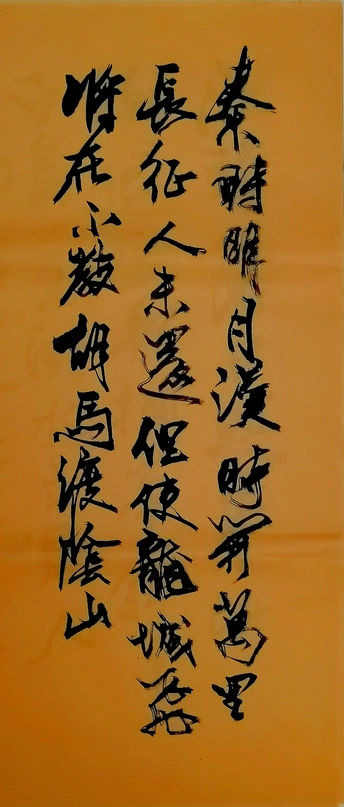 秦時明月漢時関萬里
長征人未還但使龍城飛
將在不教胡馬渡陰山